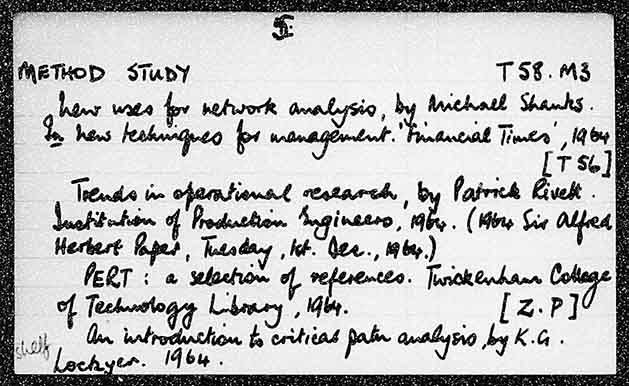 METHOD STUDY T58.M3
New uses for network analysis, by Michael Shanks.
In New techniques for management. 'Financial Times', 1964
[T56]
Trends in operational research, by Patrick Rivett.
Institution of Production Engineers, 1964. (1964 Sir Alfred
Herbert Paper, Tuesday, 1st. Dec., 1964.)
PERT : a selection of references. Twickenham College
of Technology Library, 1964. [Z.P]
An introduction to critical path analysis, by K.G.
shelf
Lockyer. 1964.